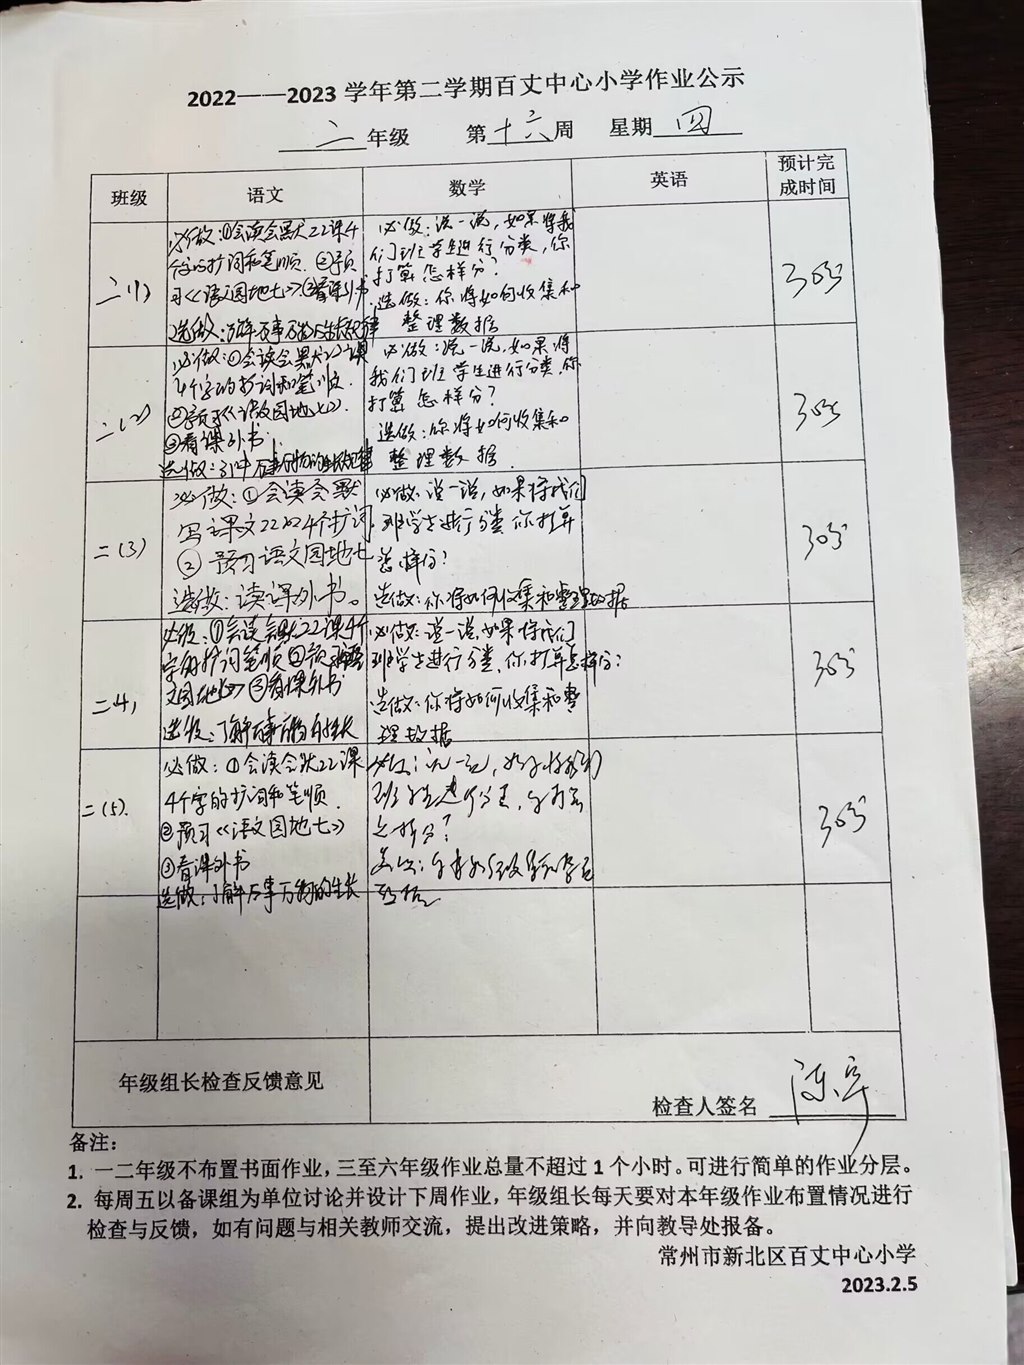 2022——2023 学年第二学期百丈中心小学作业公示
二年级 第十六周 星期四
班级 语文 数学 英语 预计完成时间
二(1)
必做:①会读会默22课4
个字的扩词和笔顺. ②预
习《语文园地七》.③看课外书.
选做:了解万事万物的生长规律
必做:说一说,如果将我
们班学生进行分类,你
打算怎样分?
选做:你将如何收集和
整理数据
30分
二(2)
必做:①会读会默22课
4个字的扩词和笔顺.
②预习《语文园地七》.
③看课外书.
选做:万事万物的生长规律
必做:说一说,如果将
我们班学生进行分类,你
打算怎样分?
选做:你将如何收集和
整理数据.
30分
二(3)
必做:①会读会默
写课文22的4个扩词.
②预习语文园地七
选做:读课外书。
必做:说一说,如果将我们
班学生进行分类你打算
怎样分?
选做:你将如何收集和整理数据
30分
二(4)
必做:①会读会默22课4个
字的扩词笔顺②预习语
文园地七③看课外书
选做:了解万事万物的生长
必做:说一说,如果将我们
班学生进行分类,你打算怎样分?
选做:你将如何收集和整
理数据
30分
二(5).
必做:①会读会默22课
4个字的扩词和笔顺.
②预习《语文园地七》
③看课外书
选做:了解万事万物的生长
必做:说一说,如果将我们
班学生进行分类,你打算
怎样分?
选做:你将如何收集和整理
数据
30分
年级组长检查反馈意见
检查人签名
备注:
1. 一二年级不布置书面作业,三至六年级作业总量不超过 1 个小时。可进行简单的作业分层。
2. 每周五以备课组为单位讨论并设计下周作业,年级组长每天要对本年级作业布置情况进行
检查与反馈,如有问题与相关教师交流,提出改进策略,并向教导处报备。
常州市新北区百丈中心小学
2023.2.5